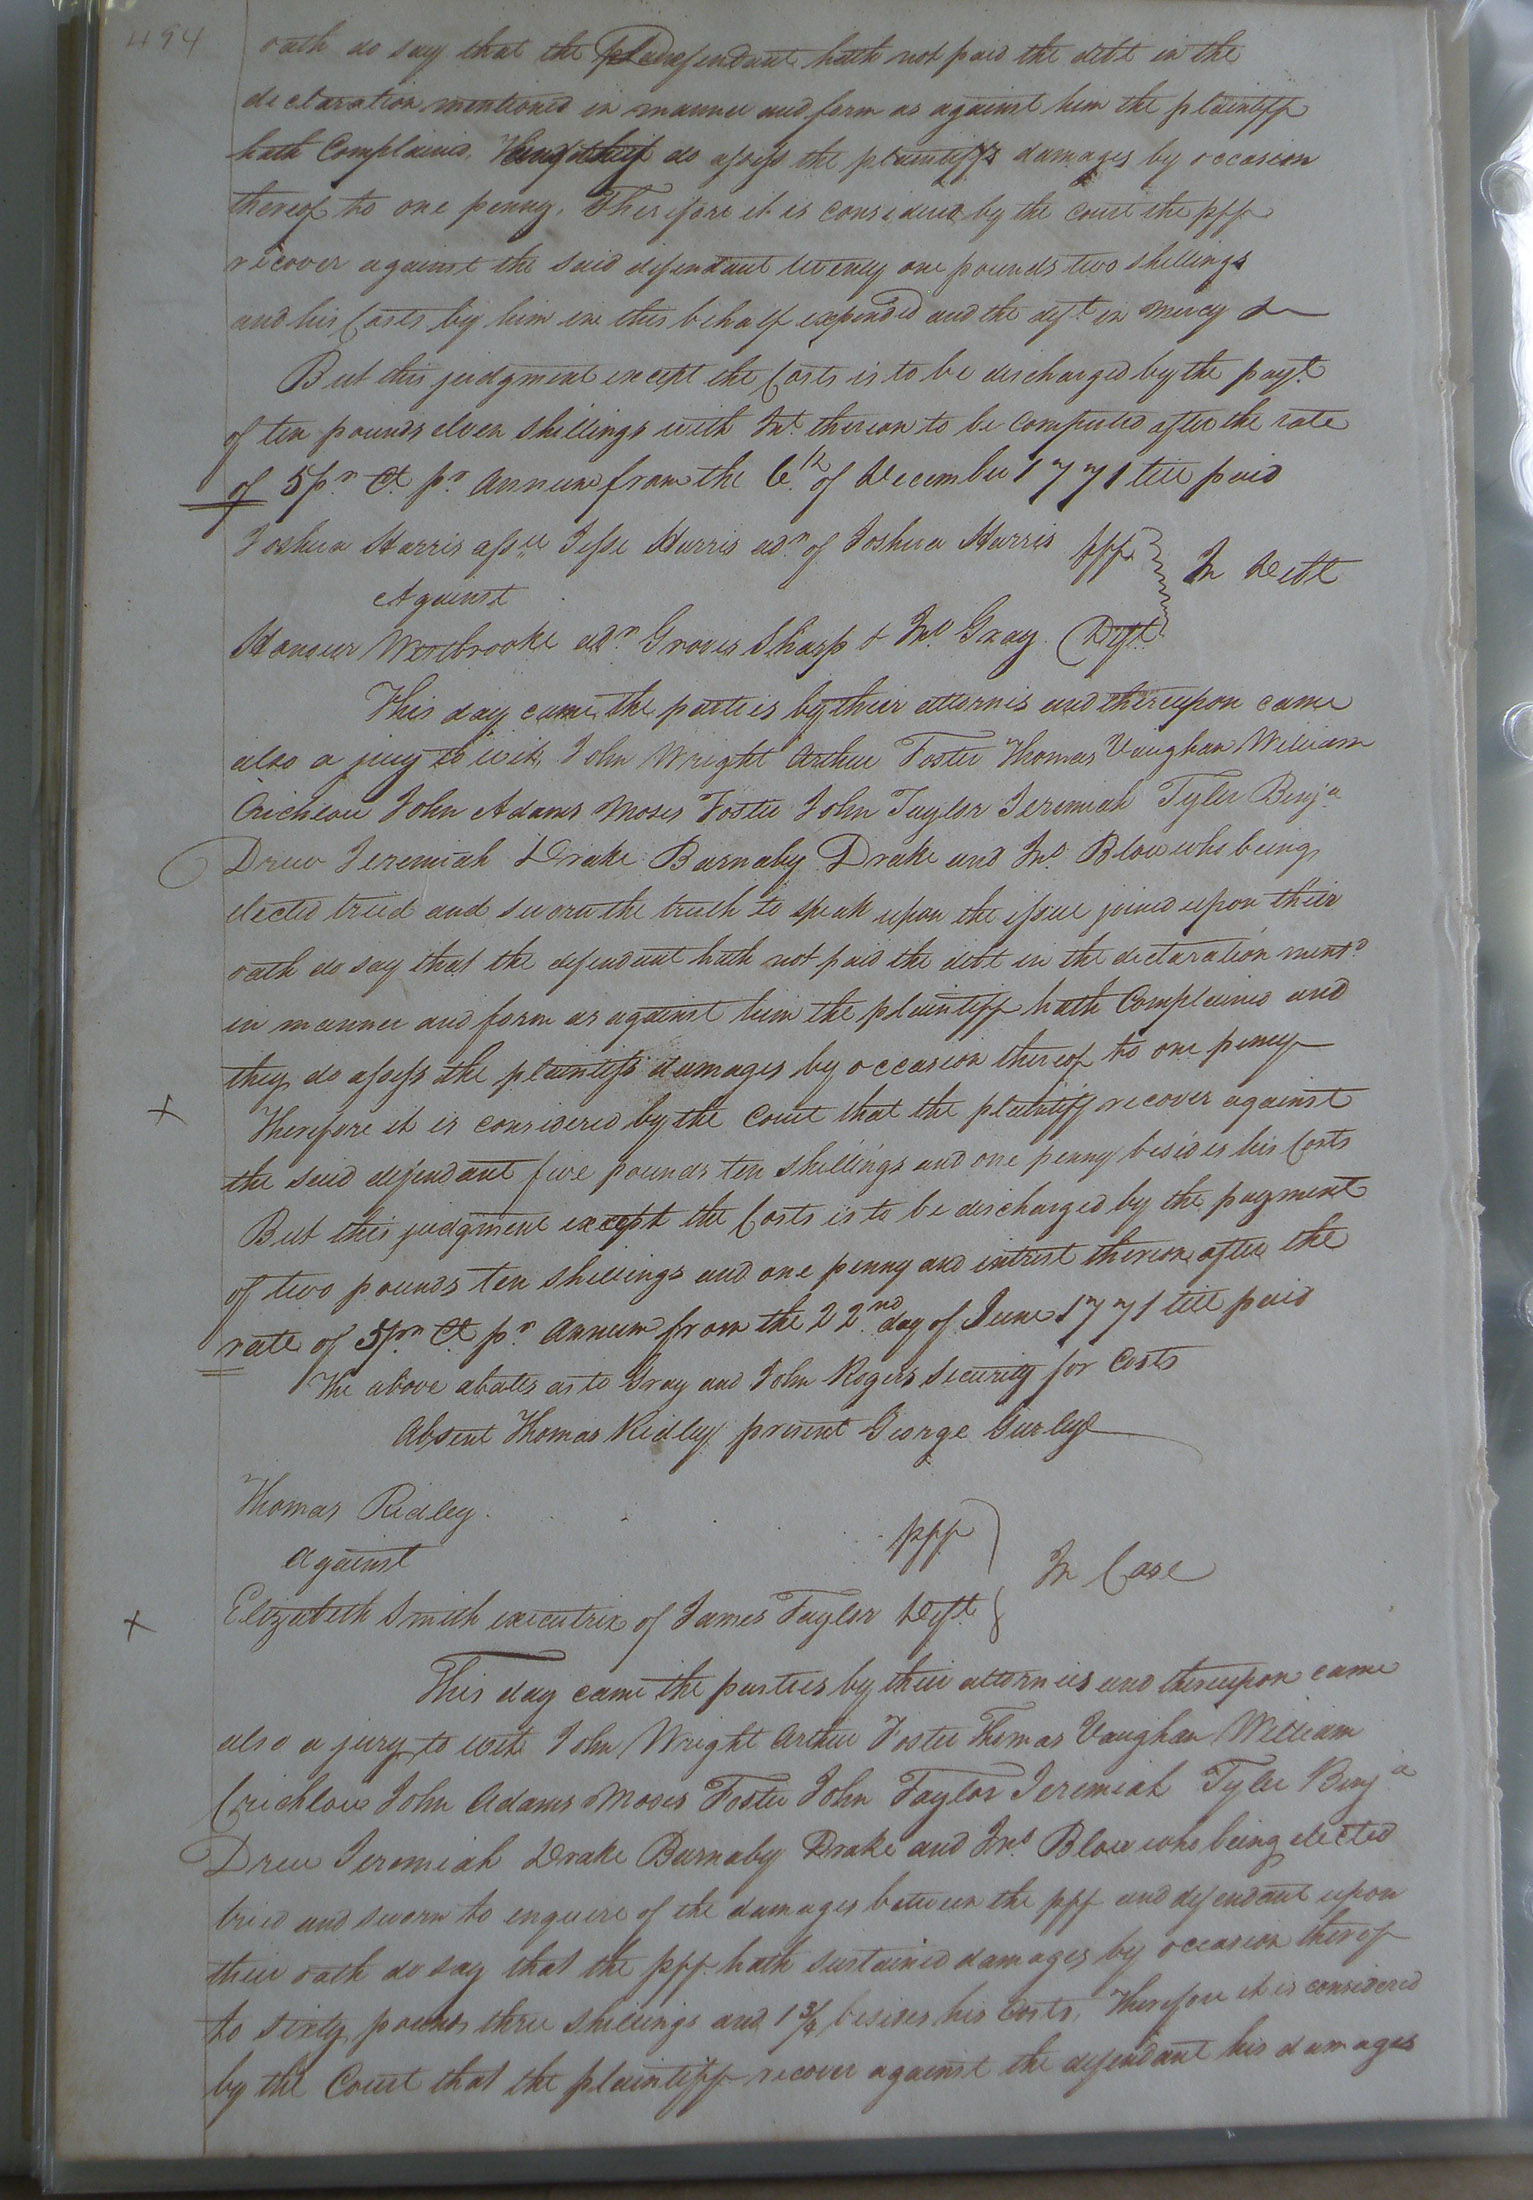 494
oath do say that the defendant hath not paid the debt in the
declaration mentioned in manner and form as against him the plaintiff
hath Complained, do assess the plaintiffs damages by occasion
thereof to one penny. Therefore it is considered by the court the pff
recover against the said defendant twenty one pounds two shillings
and his Costs by him in this behalf expended and the deft in mercy &
But this judgment except the Costs is to be discharged by the payt
of ten pounds eleven shillings with Int. thereon to be computed after the rate
of 5 pr Ct pr Annum from the 6th of December 1771 till paid
Joshua Harris assee Jesse Harris adr of Joshua Harris pff
Against
In Debt
Honour Westbrooke adr Groves Sharp & Jno Gray Deft
This day came the parties by their attornis and thereupon came
also a jury to wit, John Wright Arthur Foster Thomas Vaughan William
Crichlow John Adams Moses Foster John Taylor Jeremiah Tyler Benja
Drew Jeremiah Drake Barnaby Drake and Jno Blow who being
elected tried and sworn the truth to speak upon the issue joined upon their
oath do say that the defendant hath not paid the debt in the declaration mentd
in manner and form as against him the plaintiff hath Complained and
they do assess the plaintifs damages by occasion thereof to one penny
Therefore it is considered by the Court that the plaintiff recover against
the said defendant five pounds ten shillings and one penny besides his Costs
But this judgment except the Costs is to be discharged by the payment
of two pounds ten shillings and one penny and intrest thereon after the
rate of 5 pr Ct pr Annum from the 22nd day of June 1771 till paid
The above abates as to Gray and John Rogers security for Costs
Absent Thomas Ridley present George Gurley
Thomas Ridley pff
Against
In Case
Elizabeth Smith executrix of James Taylor Deft
This day came the parties by their attornies and thereupon came
also a jury to wit John Wright Arthur Foster Thomas Vaughan William
Crichlow John Adams Moses Foster John Taylor Jeremiah Tyler Benja
Drew Jeremiah Drake Barnaby Drake and Jno Blow who being elected
tried and sworn to enquire of the damages between the pff and defendant upon
their oath do say that the pff hath sustained damages by occasion thereof
to sixty pounds three shillings and 1 3/4 besides his Costs, Therefore it is considered
by the Court that the plaintiff recover against the defendant his damages